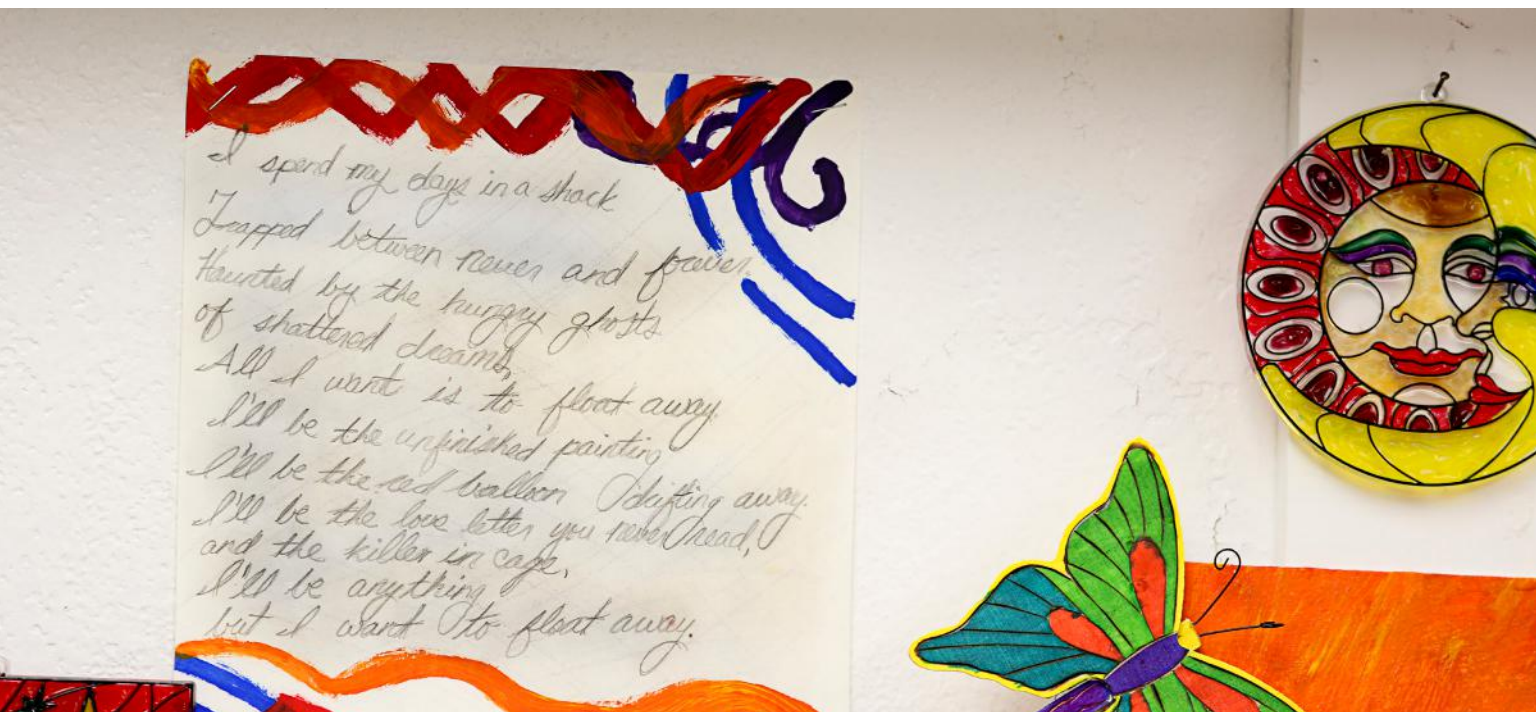 I spend my days in a shack
Trapped between never and forever.
Haunted by the hungry ghosts
of shattered dreams,
All I want is to float away.
I'll be the unfinished painting
I'll be the red balloon drifting away.
I'll be the love letter you never read,
and the killer in cage,
I'll be anything
but I want to float away.